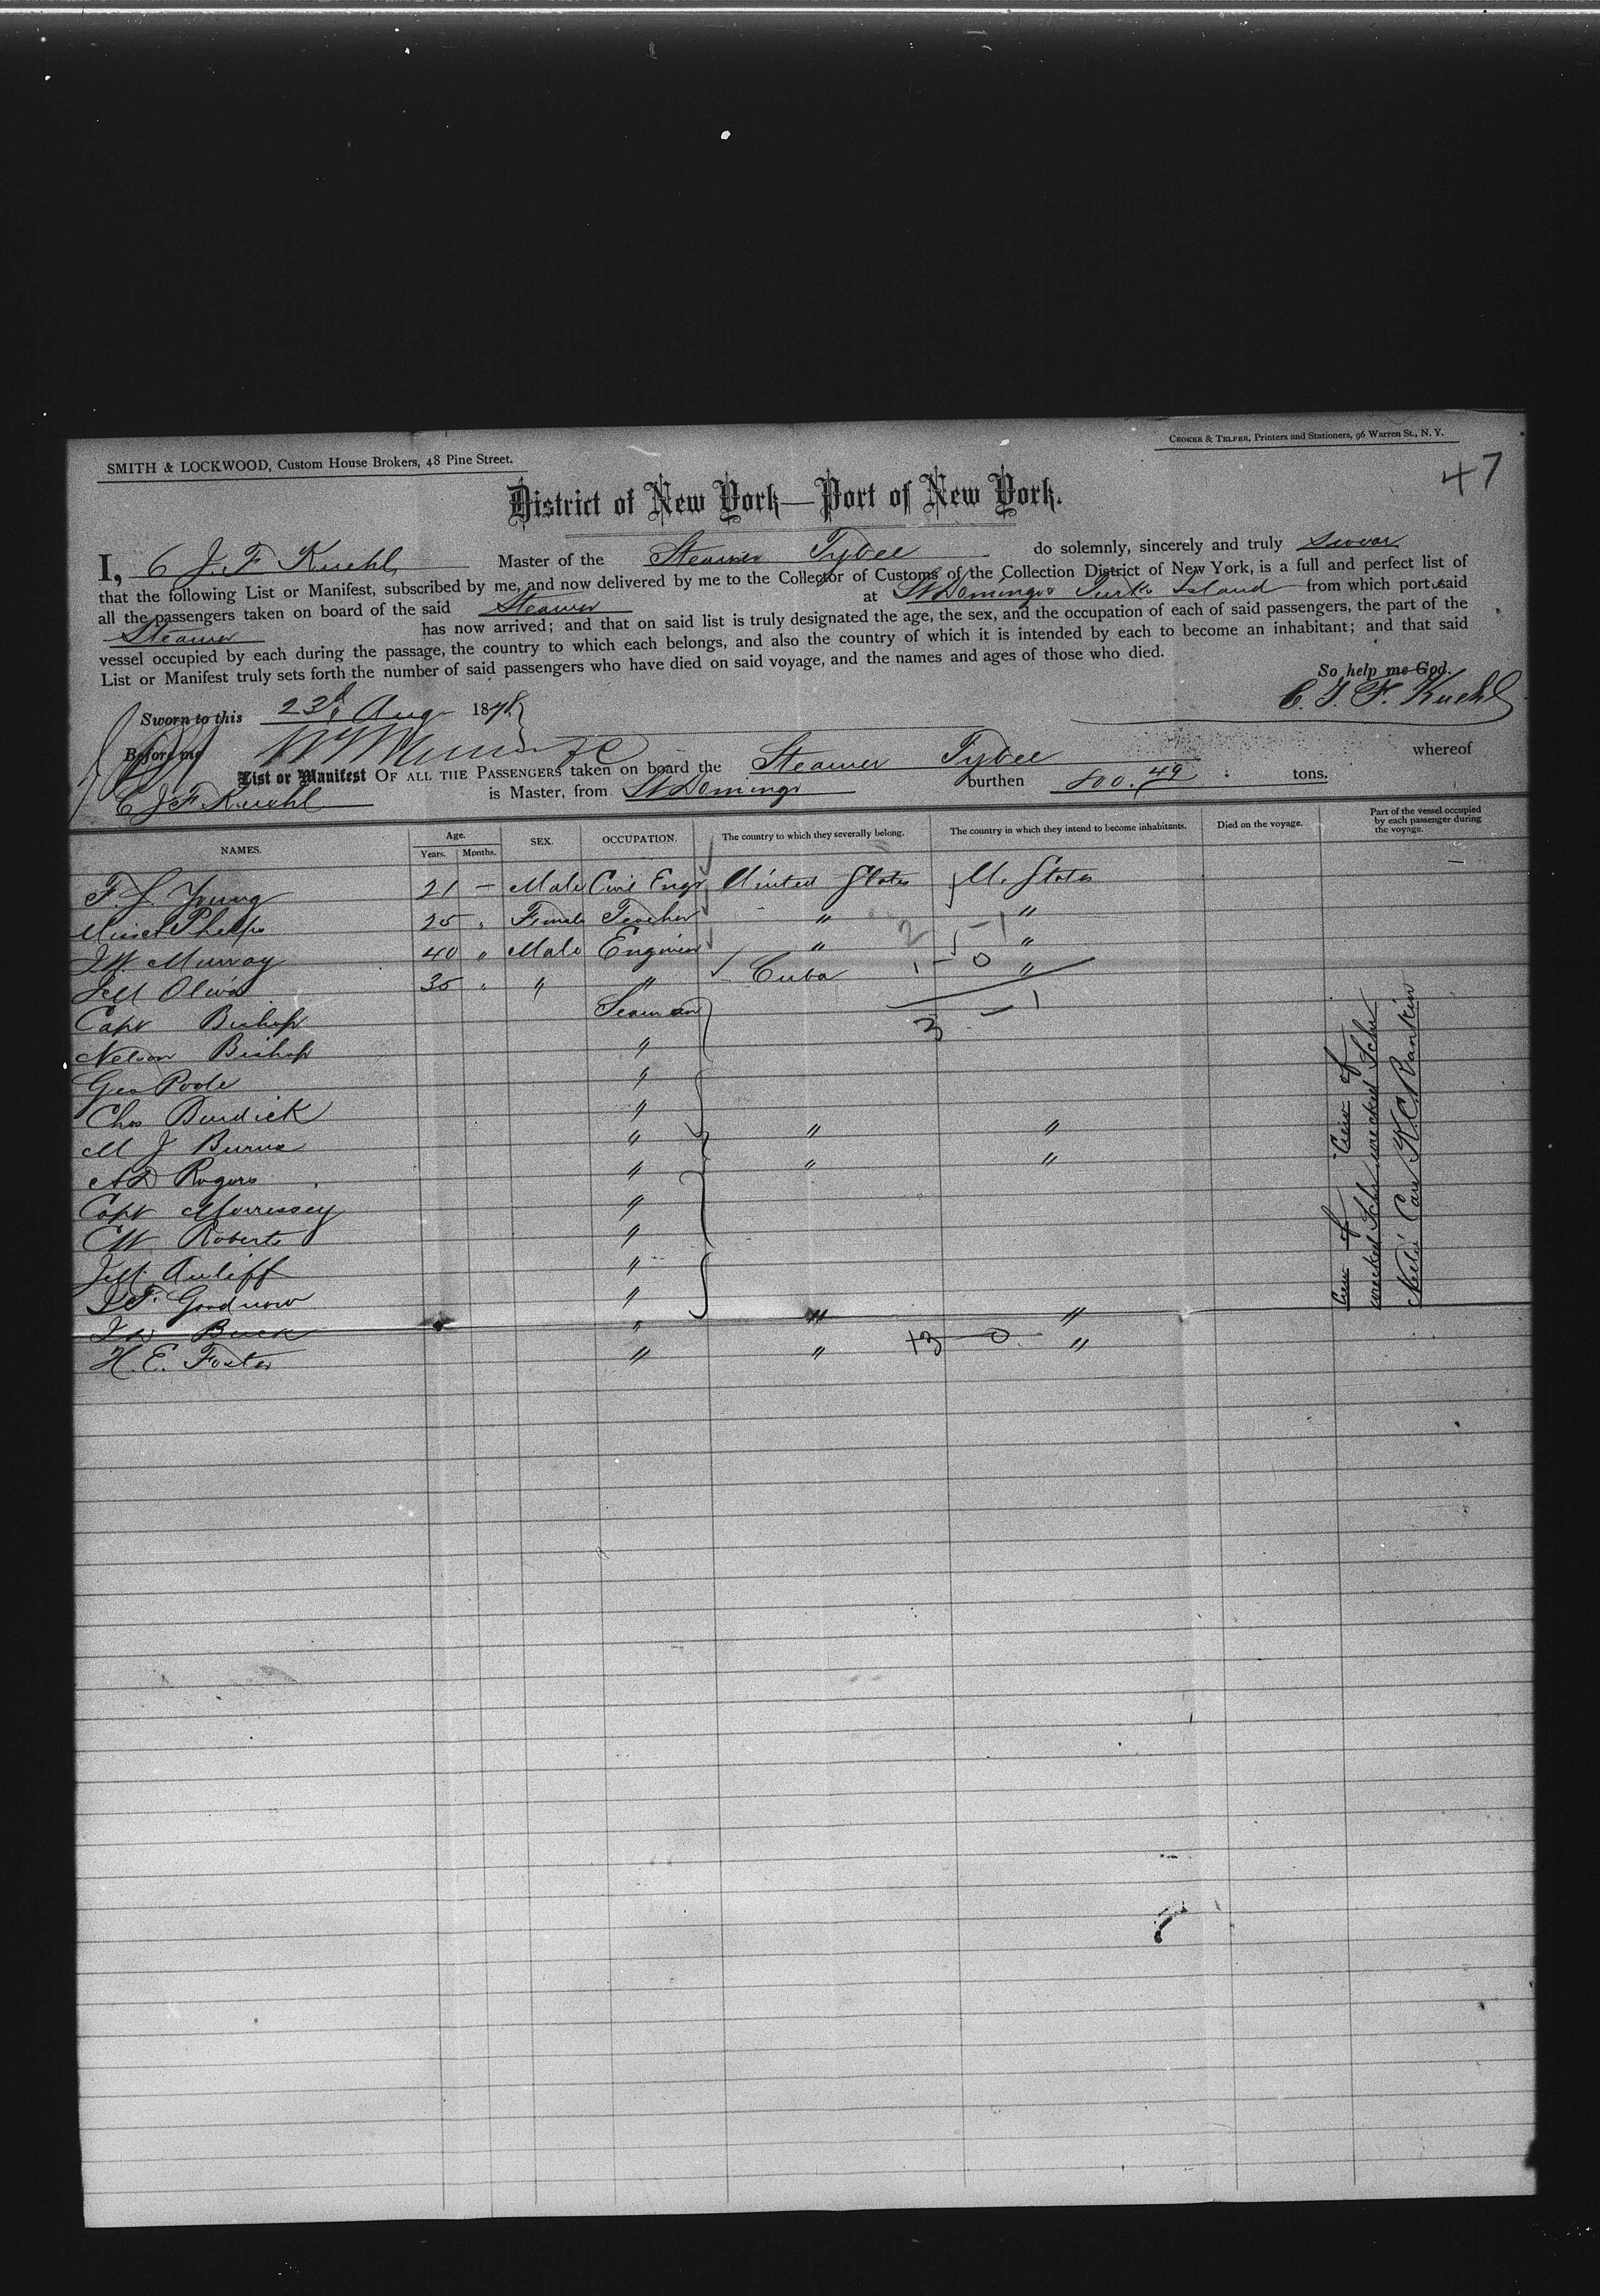 CROKER & TELFER, Printers and Stationers, 96 Warren St., N. Y.
SMITH & LOCKWOOD, Custom House Brokers, 48 Pine Street.
47
District of New York—Port of New York.
I, C J. F Kuehl Master of the Steamer Tybee do solemnly, sincerely and truly swear
that the following List or Manifest, subscribed by me, and now delivered by me to the Collector of Customs of the Collection District of New York, is a full and perfect list of
all the passengers taken on board of the said Steamer at St Domingo & Turks Island from which port said
Steamer has now arrived; and that on said list is truly designated the age, the sex, and the occupation of each of said passengers, the part of the
vessel occupied by each during the passage, the country to which each belongs, and also the country of which it is intended by each to become an inhabitant; and that said
List or Manifest truly sets forth the number of said passengers who have died on said voyage, and the names and ages of those who died.
So help me God.
C. J. F. Kuehl
Sworn to this 23d Aug 187
Before me
List or Manifest OF ALL THE PASSENGERS taken on board the Steamer Tybee whereof
C J F Kuehl is Master, from St Domingo burthen 800. 49 tons.
NAMES. Age. Years. Months. SEX. OCCUPATION. The country to which they severally belong. The country in which they intend to become inhabitants. Died on the voyage. Part of the vessel occupied by each passenger during the voyage.
F. S. Young 21 — Male Civil Engr United States U. States
Phelps 25 " Female Teacher " "
J W. Murray 40 " Male Engineer " "
Oliva 35 " " " Cuba "
Capt Bishop Seaman
Nelson Bishop "
Geo Poole "
Chas Burdick "
M J Burns " " "
A D Rogers " " "
Capt Morrissey "
C W. Roberts "
Auliff "
J F. Goodnow "
Buck " " "
H. E. Foster " " 13 0 "
2 1
1 0
3 1
Crew of wrecked Schr
Crew of wrecked Schr K. C. Rankin